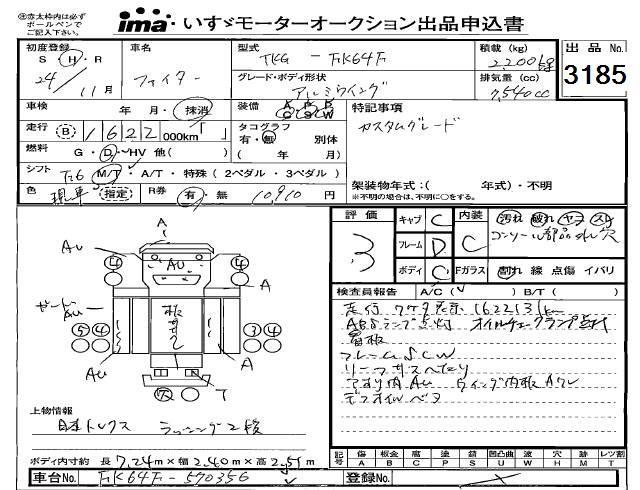 ※赤太枠内は必ず
ボールペンで
ご記入下さい。
ima いすゞモーターオークション出品申込書
初度登録 S・H・R 24/11月
車名 ファイター
型式 TKG-FK64F
積載(kg) 2,200kg
出品No. 3185
グレード・ボディ形状 アルミウイング
排気量(cc) 7,540cc
車検 年 月・抹消
装備 A/C P/S P/W
特記事項
カスタムグレード
走行 B 1622 000km「 」
タコグラフ 有・無 別体
( 年 月)
燃料 G・D・HV 他( )
シフト F6 M/T・A/T・特殊(2ペダル・3ペダル)
架装物年式:( 年式)・不明
※不明の場合は、不明に○をする。
色 現車 指定 R券 有・無 10,910円
評価 3
キャブ C
フレーム D
ボディ C
内装 C
汚れ 破れ ヤケ スレ
コンソール部品外し穴
Fガラス 割れ 線 点傷 イバリ
検査員報告 A/C( ) B/T( )
走行メータ表示 162213km
ABSランプ点灯 オイルチェックランプ点灯
看板
フレームSCW
リーフサスへたり
アオリ内AU ウイング内板Aワレ
デフオイルベタ
A
AU AU A
4 4
ゲートAU
板キズC
5 4 3 4
AU A
穴 T
上物情報
日本トレクス ラッシング2段
ボディ内寸約 長 7.24m×幅 2.40m×高 2.51m
記号 傷A 板金B 腐C 塗P 錆S 凹凸曲U 波W 穴H 跡M レツ割T
車台No. FK64F-570356
登録No.